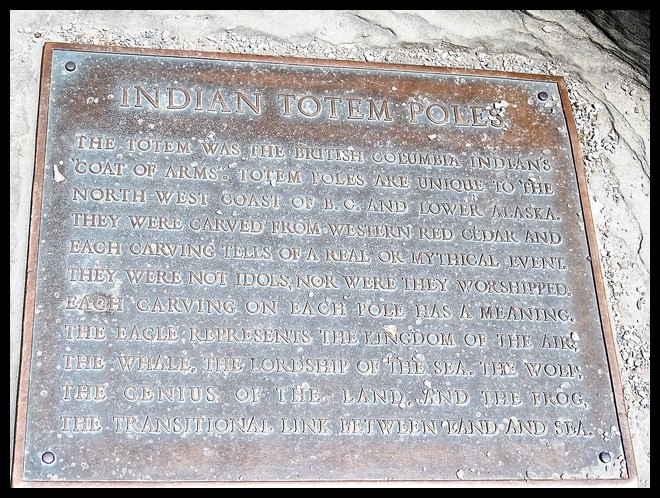 INDIAN TOTEM POLES
THE TOTEM WAS THE BRITISH COLUMBIA INDIAN'S
"COAT OF ARMS". TOTEM POLES ARE UNIQUE TO THE
NORTH WEST COAST OF B.C. AND LOWER ALASKA.
THEY WERE CARVED FROM WESTERN RED CEDAR AND
EACH CARVING TELLS OF A REAL OR MYTHICAL EVENT.
THEY WERE NOT IDOLS, NOR WERE THEY WORSHIPPED.
EACH CARVING ON EACH POLE HAS A MEANING.
THE EAGLE REPRESENTS THE KINGDOM OF THE AIR,
THE WHALE, THE LORDSHIP OF THE SEA. THE WOLF,
THE GENIUS OF THE LAND, AND THE FROG,
THE TRANSITIONAL LINK BETWEEN LAND AND SEA.